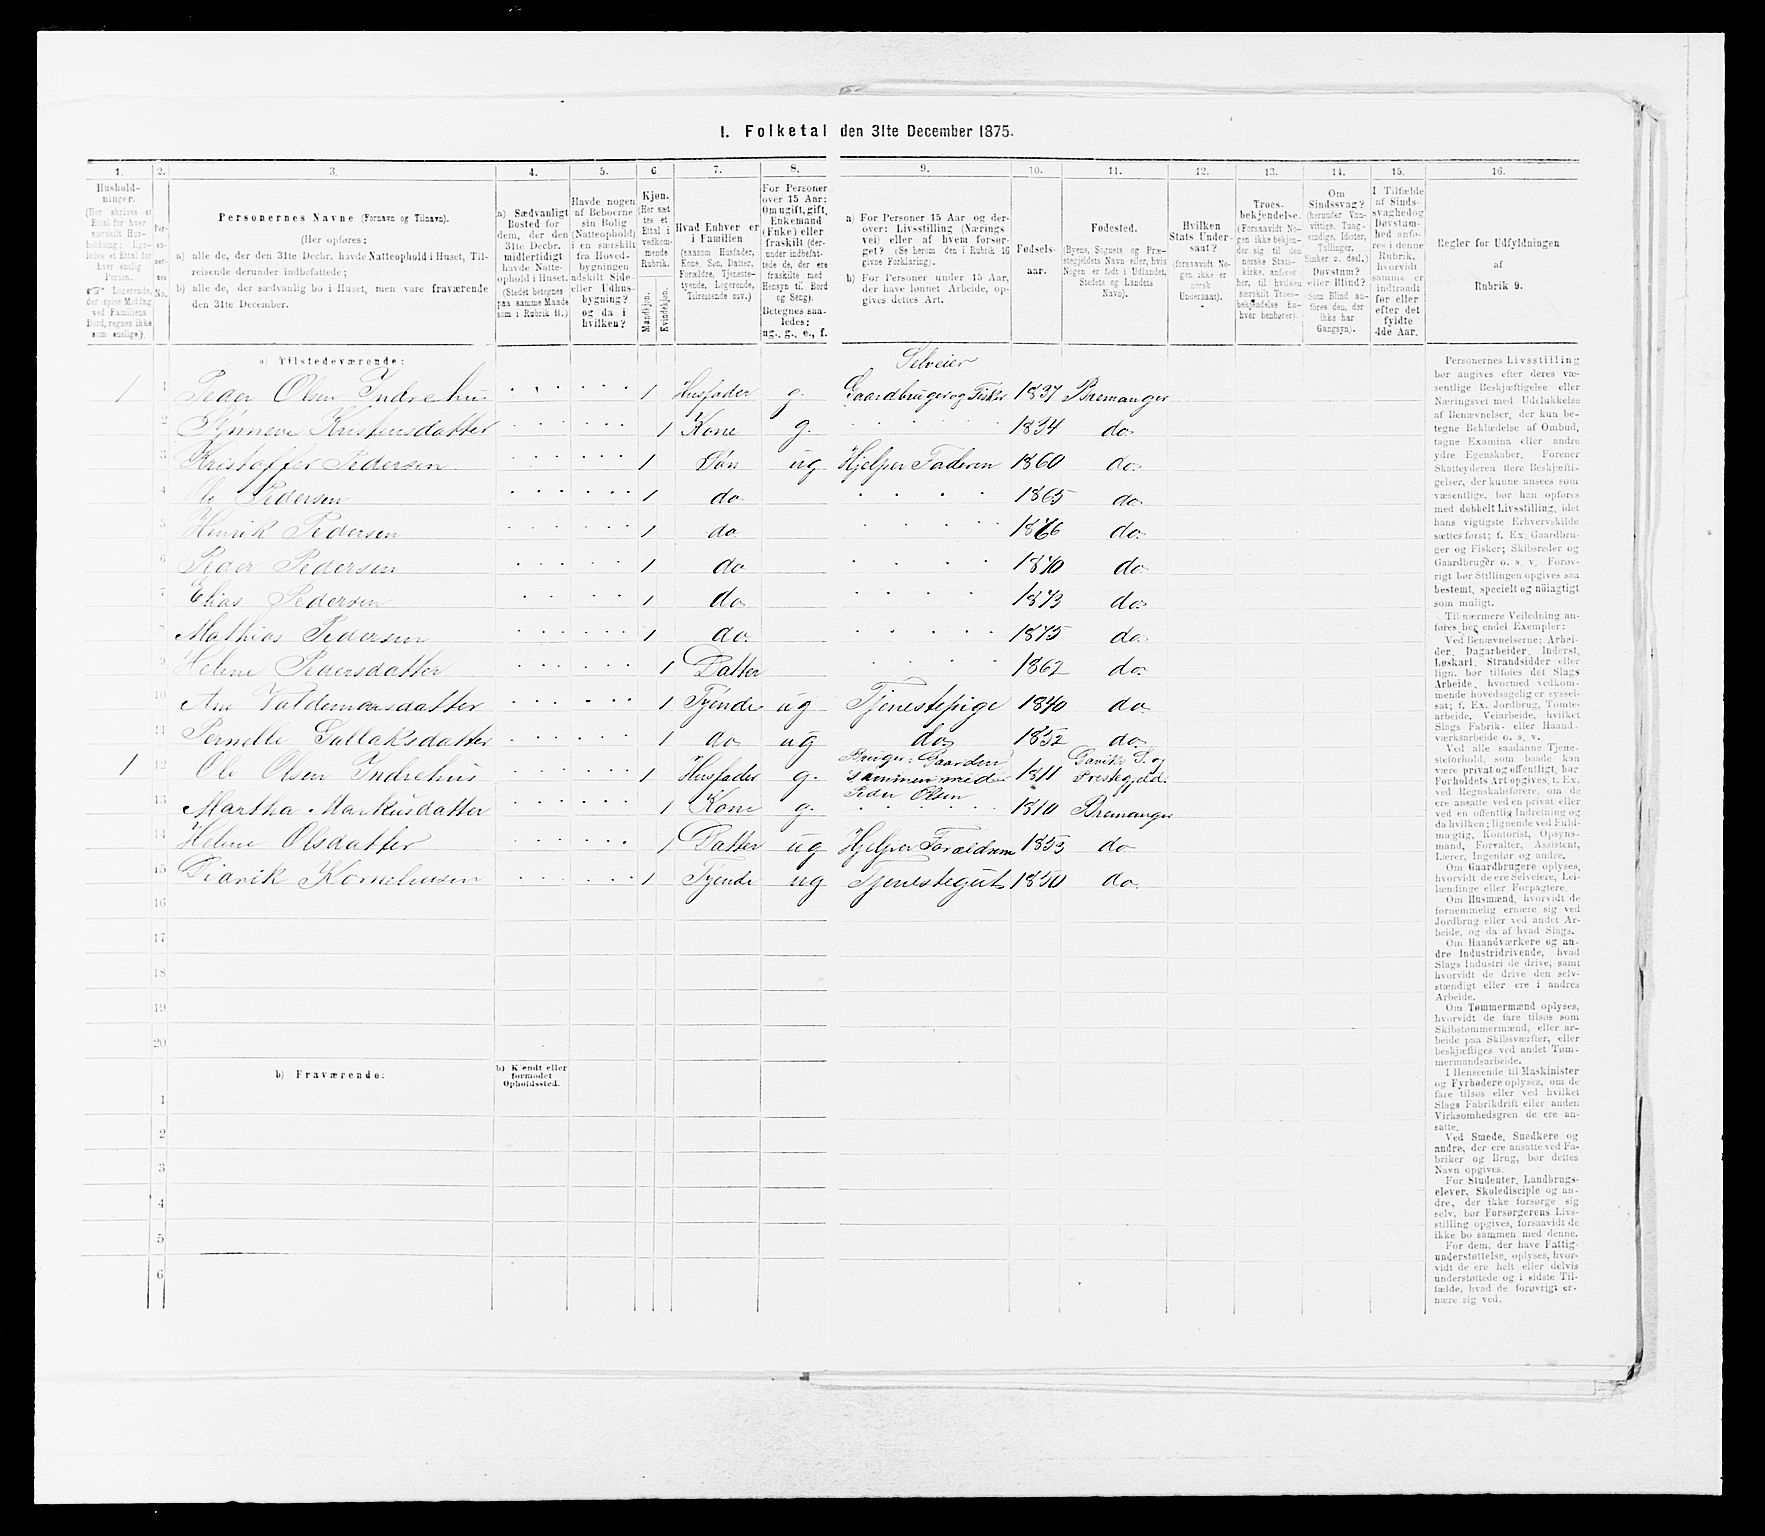 I. Folketal den 31te December 1875.
1. 2. 3. 4. 5. 6. 7. 8. 9. 10. 11. 12. 13. 14. 15. 16.
Hushold-
ninger.
(Her skrives et
Ettal for hver
særskilt Hus-
holdning; lige-
ledes et Ettal for
hver enslig
Person.
☞ Logerende,
der spise Middag
ved Familiens
Bord, regnes ikke
som enslige).
Per-
so-
ner-
nes
No.
Personernes Navne (Fornavn og Tilnavn).
(Her opføres:
a) alle de, der den 31te Decbr. havde Natteophold i Huset, Til-
reisende derunder indbefattede;
b) alle de, der sædvanlig bo i Huset, men vare fraværende
den 31te December.
a) Sædvanligt
Bosted for
dem, der den
31te Decbr.
midlertidigt
havde Natte-
ophold i Huset.
(Stedet betegnes
paa samme Maade
som i Rubrik 11.)
Havde nogen
af Beboerne
sin Bolig
(Natteophold)
i en særskilt
fra Hoved-
bygningen
adskilt Side-
eller Udhus-
bygning?
og da i
hvilken?
Kjøn.
(Her sæt
tes et
Ettal i
vedkom-
mende
Rubrik.
Mandkjøn.
Kvindekjøn.
Hvad Enhver er
i Familien
(saasom Husfader,
Kone, Søn, Datter,
Forældre, Tjeneste-
tyende, Logerende,
Tilreisende osv.)
For Personer
over 15 Aar:
Om ugift, gift,
Enkemand
(Enke) eller
fraskilt (der-
under indbefat-
tede de, der ere
fraskilte med
Hensyn til Bord
og Seng).
Betegnes saa-
ledes:
ug., g., e., f.
a) For Personer 15 Aar og der-
over: Livsstilling (Nærings
vei) eller af hvem forsør-
get? (Se herom den i Rubrik 16
givne Forklaring).
b) For Personer under 15 Aar,
der have lønnet Arbeide, op-
gives dettes Art.
Fødsels-
aar.
Fødested.
(Byens, Sognets og Præ-
stegjeldets Navn eller, hvis
Nogen er født i Udlandet,
Stedets og Landets
Navn).
Hvilken
Stats Under-
saat?
(forsaavidt No-
gen ikke er
norsk
Undersaat).
Troes-
bekjendelse.
(Forsaavidt No-
gen ikke bekjen-
der sig til den
norske Stats-
kirke, anføres
her, til hvilken
særskilt Troes-
bekjendelse En-
hver henhører).
Om
Sindssvag?
(herunder Van-
vittige, Tung-
sindige, Idioter,
Tullinger,
Sinker o. desl.)
Døvstum?
eller Blind?
(Som Blind an-
føres den, der
ikke har
Gangsyn).
I Tilfælde
af Sinds-
svaghed og
Døvstum-
hed anfø-
res i denne
Rubrik,
hvorvidt
samme er
indtraadt
før eller
efter det
fyldte
4de Aar.
Regler for Udfyldningen
af
Rubrik 9.
a) Tilstedeværende:
Selveier
1 1 Peder Olsen Indrehus 1 Husfader g. Gaardbruger og Fisker 1837 Bremanger
2 Synneve Kristensdatter 1 Kone g. 1834 do.
3 Kristoffer Pedersen 1 Søn ug Hjelper Faderen 1860 do.
4 Ole Pedersen 1 do 1865 do.
5 Henrik Pedersen 1 do 1866 do.
6 Peder Pedersen 1 do 1870 do.
7 Elias Pedersen 1 do 1873 do.
8 Mathias Pedersen 1 do 1875 do.
9 Helene Pedersdatter 1 Datter 1862 do.
10 Ane Valdemarsdatter 1 Tyende ug Tjenestepige 1840 do.
11 Pernelle Gullaksdatter 1 do ug do 1852 do.
1 12 Ole Olsen Indrehus 1 Husfader g. Bruger Gaarden
sammen med
Peder Olsen 1811 Daviks S. og
Prestegjeld.
13 Martha Markusdatter 1 Kone g. 1810 Bremanger
14 Helene Olsdatter 1 Datter ug Hjelper Forældrene 1853 do
15 Didrik Korneliusen 1 Tyende ug Tjenestegut 1850 do.
16
17
18
19
20
b) Fraværende:
b) Kjendt eller
formodet
Opholdssted.
1
2
3
4
5
6
Personernes Livsstilling
bør angives efter deres væ-
sentlige Beskjæftigelse eller
Næringsvei med Udelukkelse
af Benævnelser, der kun be-
tegne Beklædelse af Ombud,
tagne Examina eller andre
ydre Egenskaber. Forener
Skatteyderen flere Beskjæfti-
gelser, der kunne ansees som
væsentlige, bør han opføres
med dobbelt Livsstilling, idet
hans vigtigste Erhvervskilde
sættes først; f. Ex. Gaardbru-
ger og Fisker; Skibsreder og
Gaardbruger o. s. v. Forøv-
rigt bør Stillingen opgives saa
bestemt, specielt og nøiagtigt
som muligt.
Til nærmere Veiledning an-
føres her endel Exempler:
Ved Benævnelserne: Arbei-
der, Dagarbeider, Inderst,
Løskarl, Strandsidder eller
lign. bør tilføies det Slags
Arbeide, hvormed vedkom-
mende hovedsagelig er syssel-
sat; f. Ex. Jordbrug, Tomte-
arbeide, Veiarbeide, hvilket
Slags Fabrik- eller Haand-
værksarbeide o. s. v.
Ved alle saadanne Tjene-
steforhold, som baade kan
være privat og offentligt, bør
Forholdets Art opgives, t. Ex.
ved Regnskabsførere, om de
ere ansatte ved en privat eller
ved en offentlig Indretning og
da hvilken; lignende ved Fuld-
mægtig, Kontorist, Opsyns-
mand, Forvalter, Assistent,
Lærer, Ingeniør og andre.
Om Gaardbrugere oplyses,
hvorvidt de ere Selveiere, Lei-
lændinge eller Forpagtere.
Om Husmænd, hvorvidt de
fornemmelig ernære sig ved
Jordbrug eller ved andet Ar-
beide, og da af hvad Slags.
Om Haandværkere og an-
dre Industridrivende, hvad
Slags Industri de drive, samt
hvorvidt de drive den selv-
stændigt eller ere i andres
Arbeide.
Om Tømmermænd oplyses,
hvorvidt de fare tilsøs som
Skibstømmermænd, eller ar-
beide paa Skibsværfter, eller
beskjæftiges ved andet Tøm-
mermandsarbeide.
I Henseende til Maskinister
og Fyrbødere oplyses, om de
fare tilsøs eller ved hvilket
Slags Fabrikdrift eller anden
Virksomhedsgren de ere an-
satte.
Ved Smede, Snedkere og
andre, der ere ansatte ved Fa-
briker og Brug, bør dettes
Navn opgives.
For Studenter, Landbrugs-
elever, Skoledisciple og an-
dre, der ikke forsørge sig
selv, bør Forsørgerens Livs-
stilling opgives, forsaavidt de
ikke bo sammen med denne.
For dem, der have Fattig-
understøttelse, oplyses, hvor-
vidt de ere helt eller delvis
understøttede og i sidste Til-
fælde, hvad de forøvrigt er-
nære sig ved.